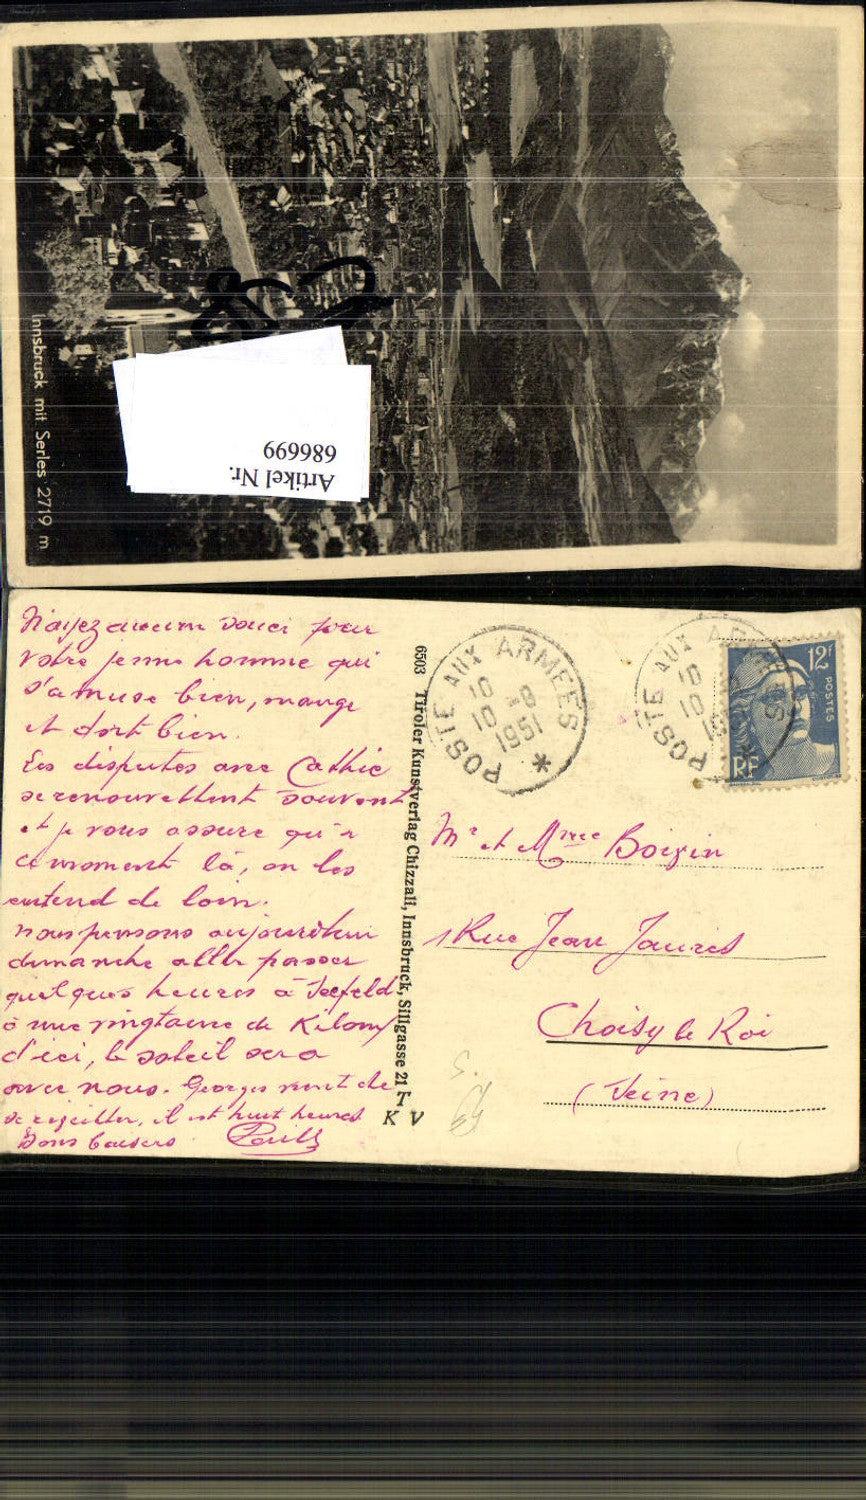 Innsbruck mit Serles 2719 m
Artikel Nr.
686699
N'ayez aucun souci pour
votre jeune homme qui
s'amuse bien, mange
et dort bien.
Les disputes avec Cathie
se renouvellent souvent
et je vous assure qu'à
ce moment là, on les
entend de loin.
nous pensons aujourd'hui
dimanche aller passer
quelques heures à Seefeld
à une vingtaine de Kilom
d'ici, le soleil sera
avec nous. Georges vient de
se réveiller, il est huit heures
Bons baisers
6503 Tiroler Kunstverlag Chizzali, Innsbruck, Sillgasse 21
T
K V
POSTE AUX ARMEES
10
10 -8
1951
POSTE AUX
10
10
12F
POSTES
RF
Mr et Mme Boizin
1 Rue Jean Jaurès
Choisy le Roi
(Seine)